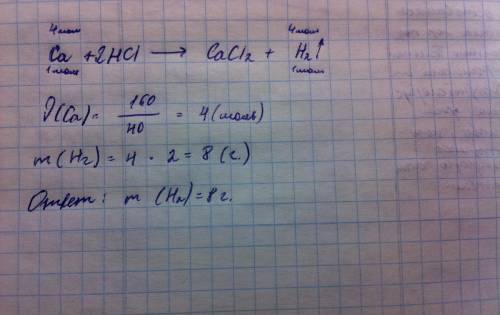 4 моль 4 моль
Ca + 2HCl ⟶ CaCl₂ + H₂↑
1 моль 1 моль
ν(Ca) = 160/40 = 4 (моль)
m (H₂) = 4 · 2 = 8 (г.)
Ответ: m (H₂) = 8 г.